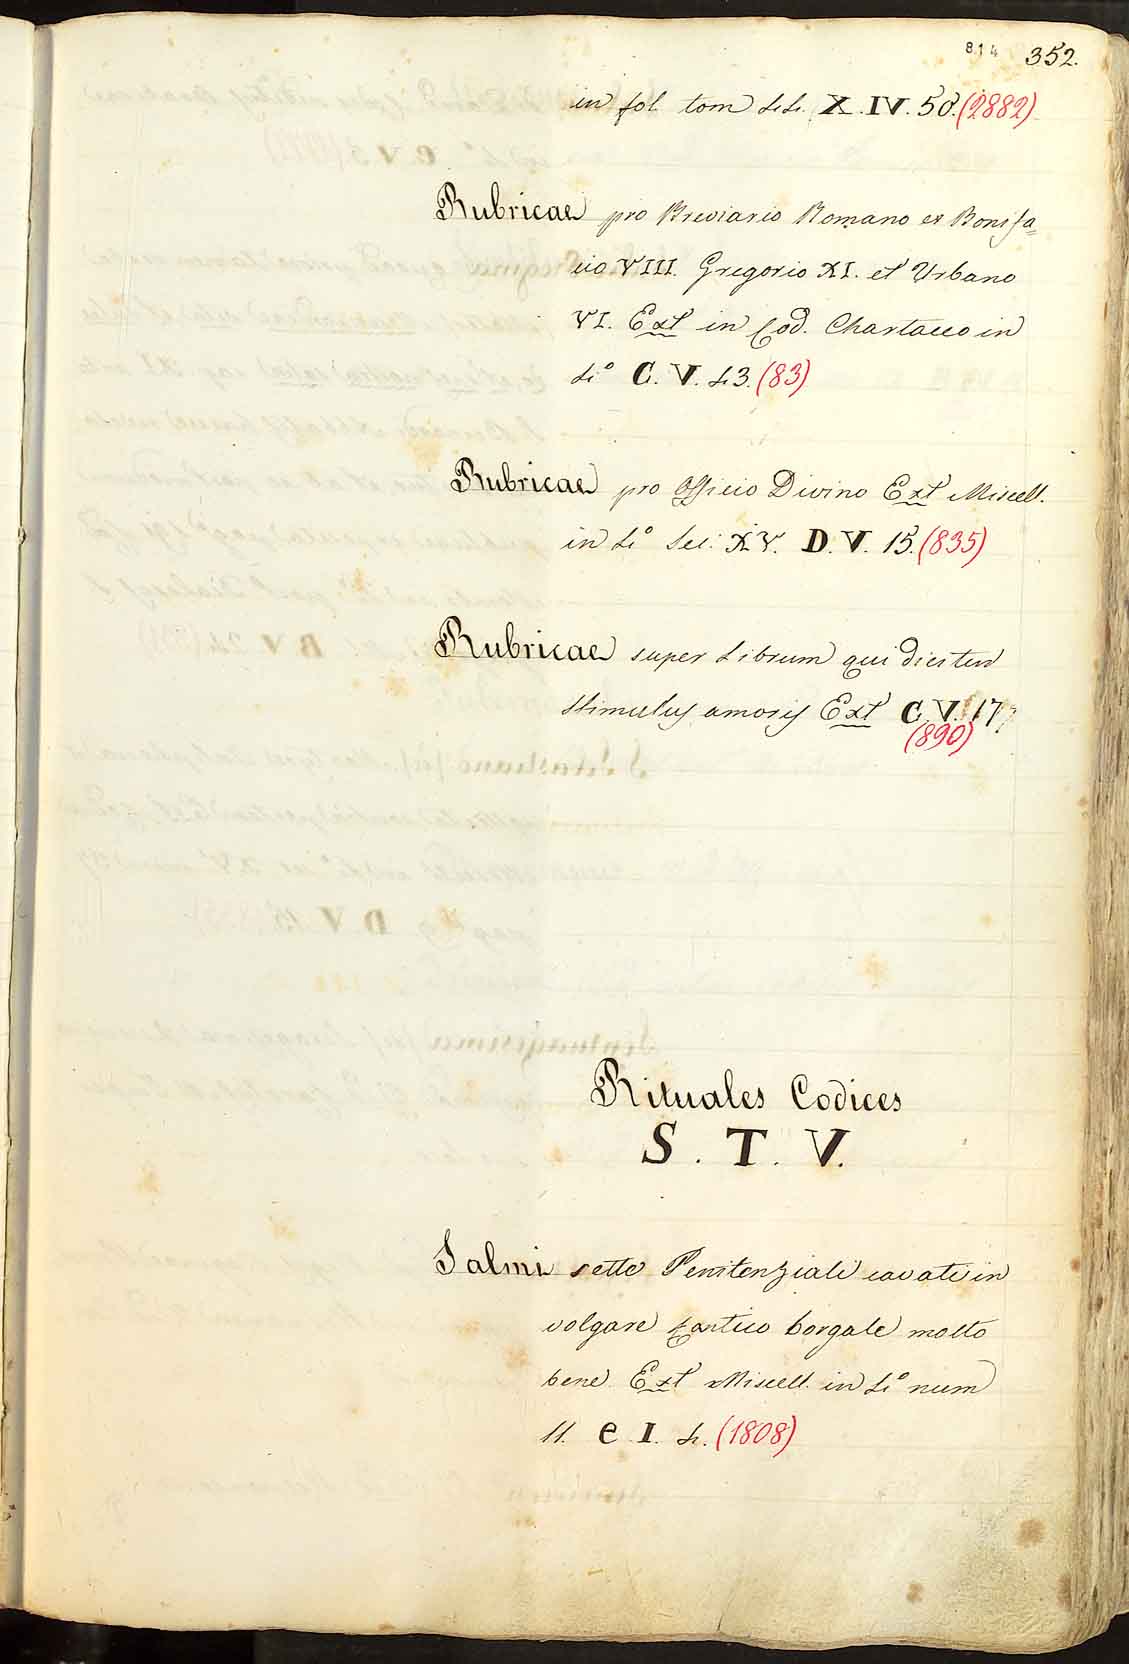 814 352.
in fol tom 44. X.IV. 50. (2882)
Rubricae pro Breviario Romano ex Bonifa=
cio VIII. Gregorio XI. et Urbano
VI. Ext in Cod. Chartaceo in
4º C. V. 43. (83)
Rubricae pro Officio Divino Ext Miscell.
in 4º Sec. XV. D. V. 15. (835)
Rubricae super Librum qui dicitur
stimulus amoris Ext C. V. 17
(890)
Rituales Codices
S. T. V.
Salmi sette Penitenziali cavati in
volgare molto
bene Ext Miscell. in 4º num
11. e I. 4. (1808)